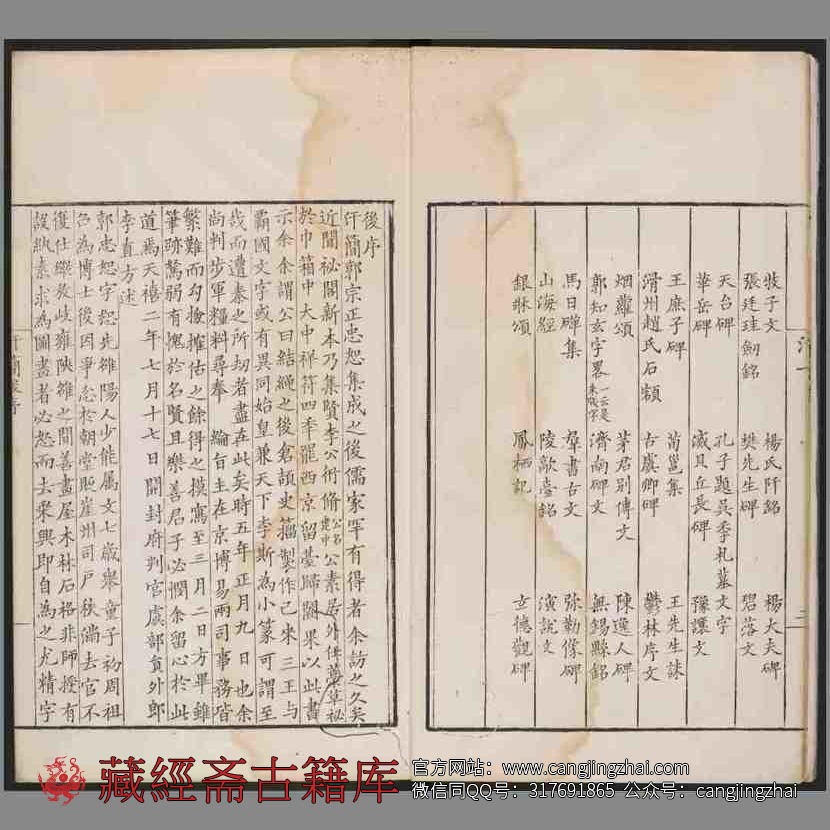 牧子文 楊氏阡銘 楊大夫碑
張廷珪劒銘 樊先生碑 碧落文
天台碑 孔子題吳季札墓文字
華岳碑 滅貝丘長碑 豫讓文
王庶子碑 荀邕集 王先生誄
滑州趙氏石額 古虞卿碑 鬱林序文
烟蘿頌 茅君別傳文 陳逸人碑
郭知玄字畧一云是朱牋字 濟南碑文 無錫縣銘
馬日磾集 羣書古文 弥勒像碑
山海經 陵歊臺銘 演說文
銀牀頌 鳳栖記 立德觀碑
三
後序
汗簡郭宗正忠恕集成之後儒家罕有得者余訪之久矣
近聞祕閣新本乃集賢李公衎脩公名建中公素居外任藳草祕
於巾箱中大中祥符四季罷西京留臺歸闕果以此書
示余余謂公曰結繩之後倉頡史籀製作已來三王与
霸國文字或有異同始皇兼天下李斯為小篆可謂至
哉而遭秦之所刼者盡在此矣時五年正月九日也余
尚判步軍糧料尋奉 綸旨主在京博易兩司事務皆
繁難而勾檢搉估之餘得之摸寫至三月二日方畢雖
筆跡駑弱有愧於名賢且樂善君子必憫余留心於此
道焉天禧二年七月十七日開封府判官虞部貟外郎
李直方述
郭忠恕字恕先雒陽人少能属文七歲舉童子初周祖
召為博士後因爭忿於朝堂貶崖州司戶秩滿去官不
復仕縱放岐雍陝雒之間善畫屋木林石格非師授有
設紈素求為圖畫者必怒而去乘興即自為之尤精字
藏經斋古籍库
官方网站：www.cangjingzhai.com
微信同QQ号：317691865 公众号：cangjingzhai